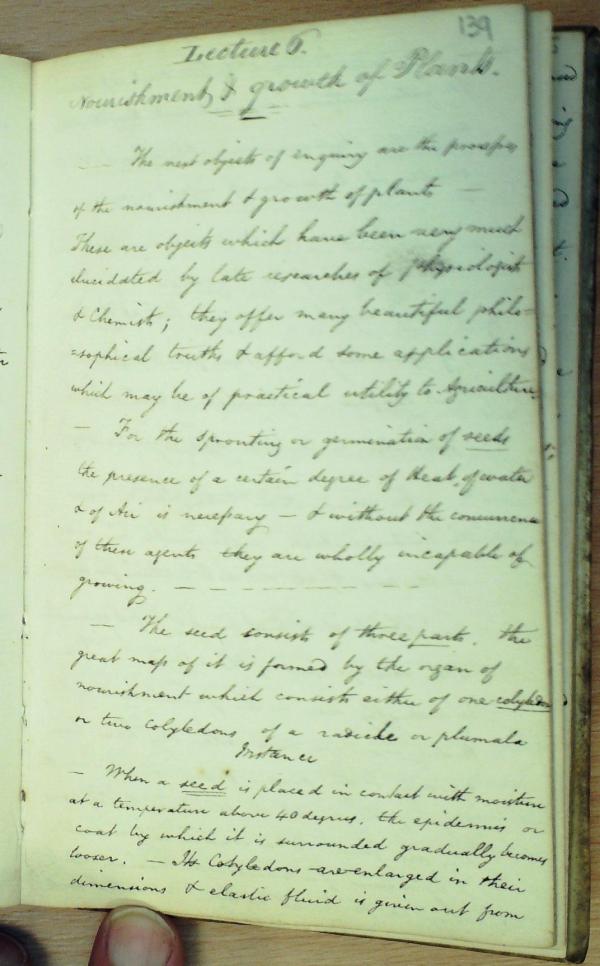 139
Lecture 6.
Nourishment & growth of Plants.
— The next objects of enquiry are the processes
of the nourishment & growth of plants —
These are objects which have been very much
elucidated by late researches of physiologists
& Chemists; they offer many beautiful philo=
=sophical truths & afford some applications
which may be of practical utility to Agriculture
— For the sprouting or germination of seeds
the presence of a certain degree of Heat, of water
& of Air is necessary — & without the concurrence
of these agents they are wholly incapable of
growing. — — — — — —
— The seed consists of three parts. the
great mass of it is formed by the organ of
nourishment which consists either of one cotyledon
or two cotyledons of a radicle or plumula
Instance
— When a seed is placed in contact with moisture
at a temperature above 40 degrees, the epidermis or
coat by which it is surrounded gradually becomes
looser. — Its Cotyledons are enlarged in their
dimensions & elastic fluid is given out from